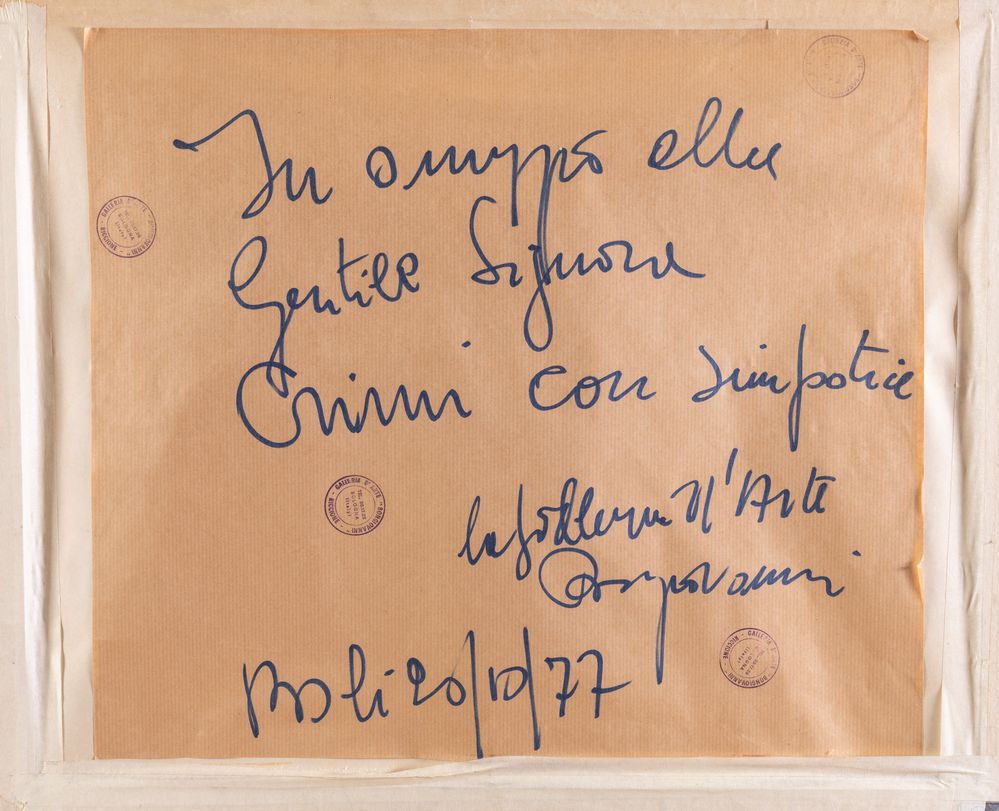 GALLERIA D'ARTE
In omaggio alla
GALLERIA D'ARTE "BONGIOVANNI" - RICCIONE -
BOLOGNA
Gentile Signora
Crimi con simpatia
GALLERIA D'ARTE "BONGIOVANNI" - RICCIONE -
BOLOGNA
la Galleria d'Arte
Bongiovanni
GALLERIA D'ARTE "BONGIOVANNI" - RICCIONE -
BOLOGNA
li 20/10/77